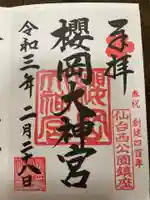 奉祝 創建四百年
仙台西公園鎮座
奉拝
櫻岡大神宮
令和三年二月二八日